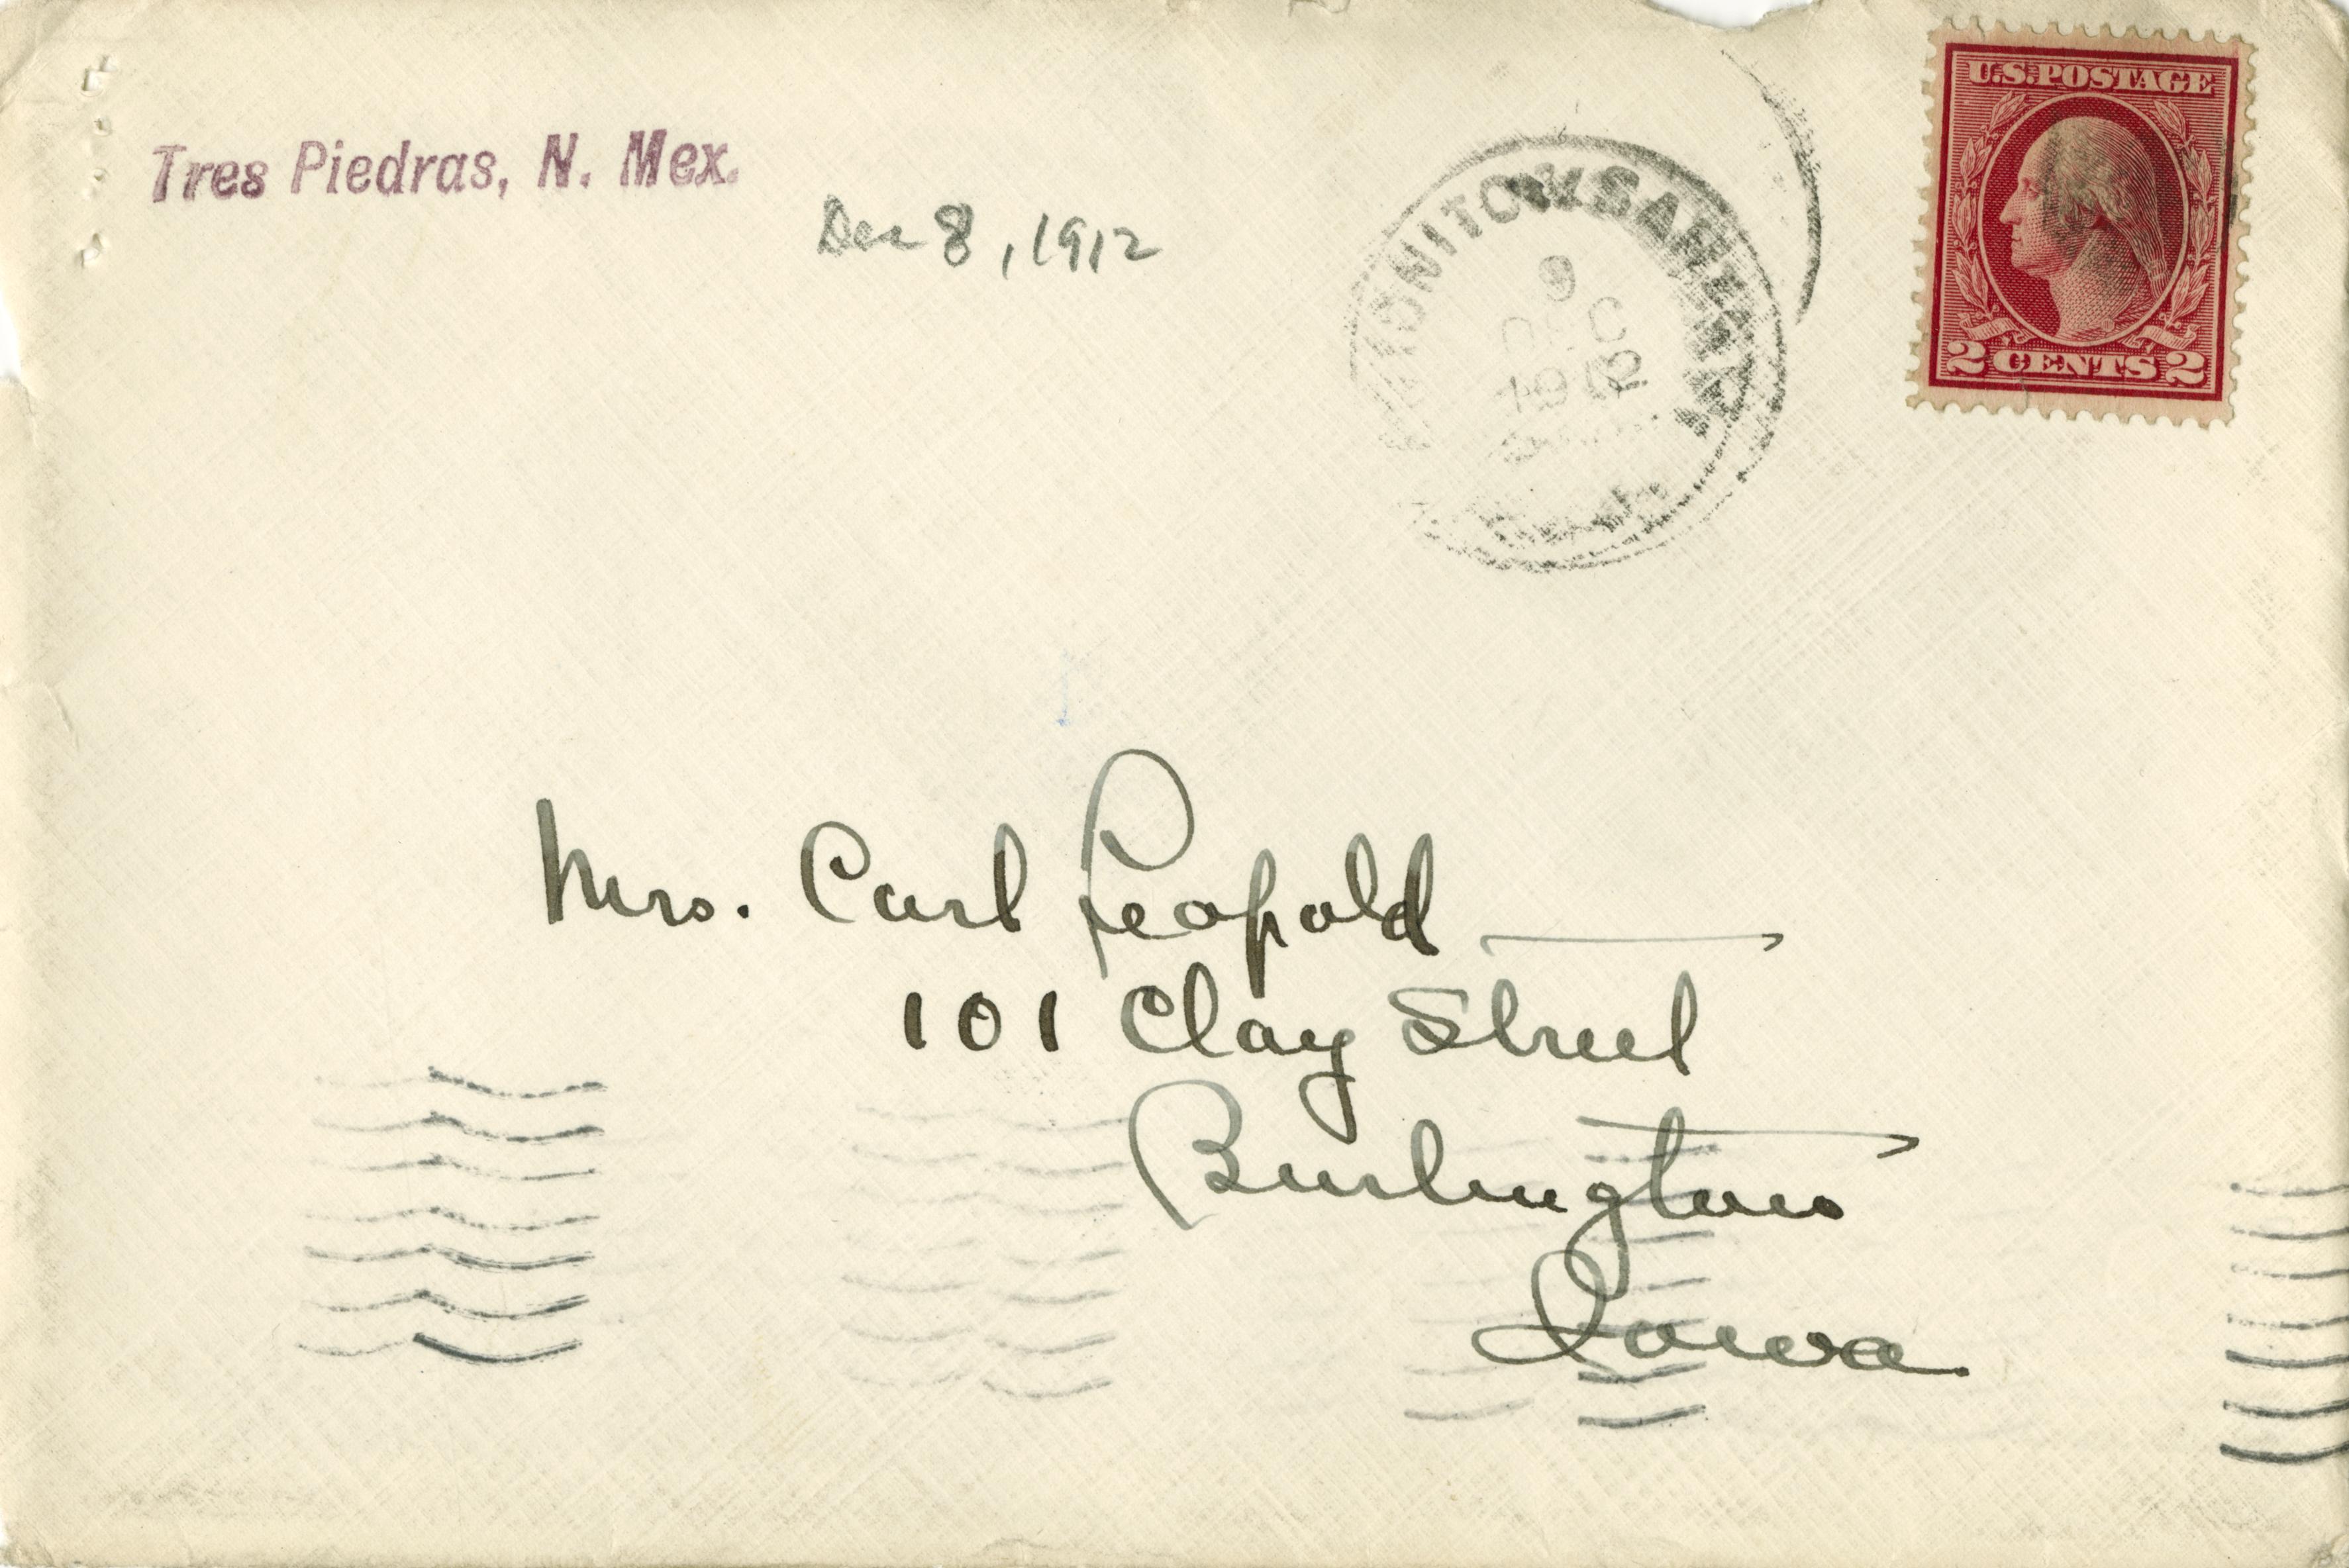 U.S.POSTAGE
2 CENTS 2
Tres Piedras, N. Mex.
Dec 8, 1912
9
DEC
1912
Mrs. Carl Leopold
101 Clay Street
Burlington
Iowa